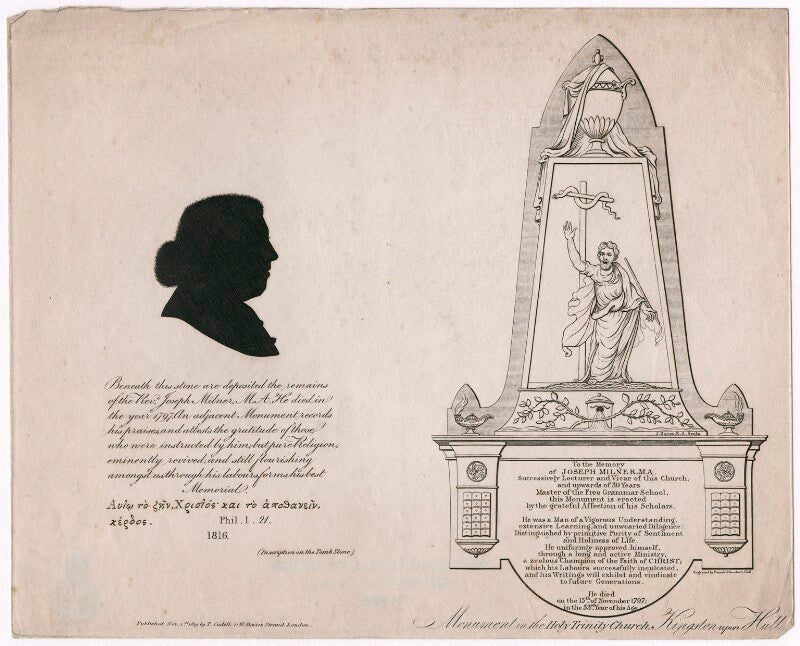 Beneath this stone are deposited the remains
of the Revd. Joseph Milner, M.A. He died in
the year 1797. An adjacent Monument records
his praises and attests the gratitude of those
who were instructed by him, but pure Religion,
eminently revived, and still flourishing
amongst us through his labours forms his best
Memorial.
Αυτῳ τὸ ζῆν, Χριστὸς· και τὸ ἀποθανεῖν,
κέρδος. Phil. 1. 21.
1816.
(Inscription on the Tomb Stone)
Published Nov. 1st 1819 by T. Cadell, & W. Davies Strand, London.
J. Bacon R.A. Sculp.
To the Memory
of JOSEPH MILNER, M.A.
Successively Lecturer and Vicar of this Church,
and upwards of 30 Years
Master of the Free Grammar School,
this Monument is erected
by the grateful Affection of his Scholars.
He was a Man of a Vigorous Understanding,
extensive Learning, and unwearied Diligence:
Distinguished by primitive Purity of Sentiment
and Holiness of Life.
He uniformly approved himself,
through a long and active Ministry,
a zealous Champion of the Faith of CHRIST;
which his Labours successfully inculcated,
and his Writings will exhibit and vindicate
to future Generations.
He died
on the 15th of November 1797;
in the 53rd Year of his Age.
Monument in the Holy Trinity Church, Kingston upon Hull